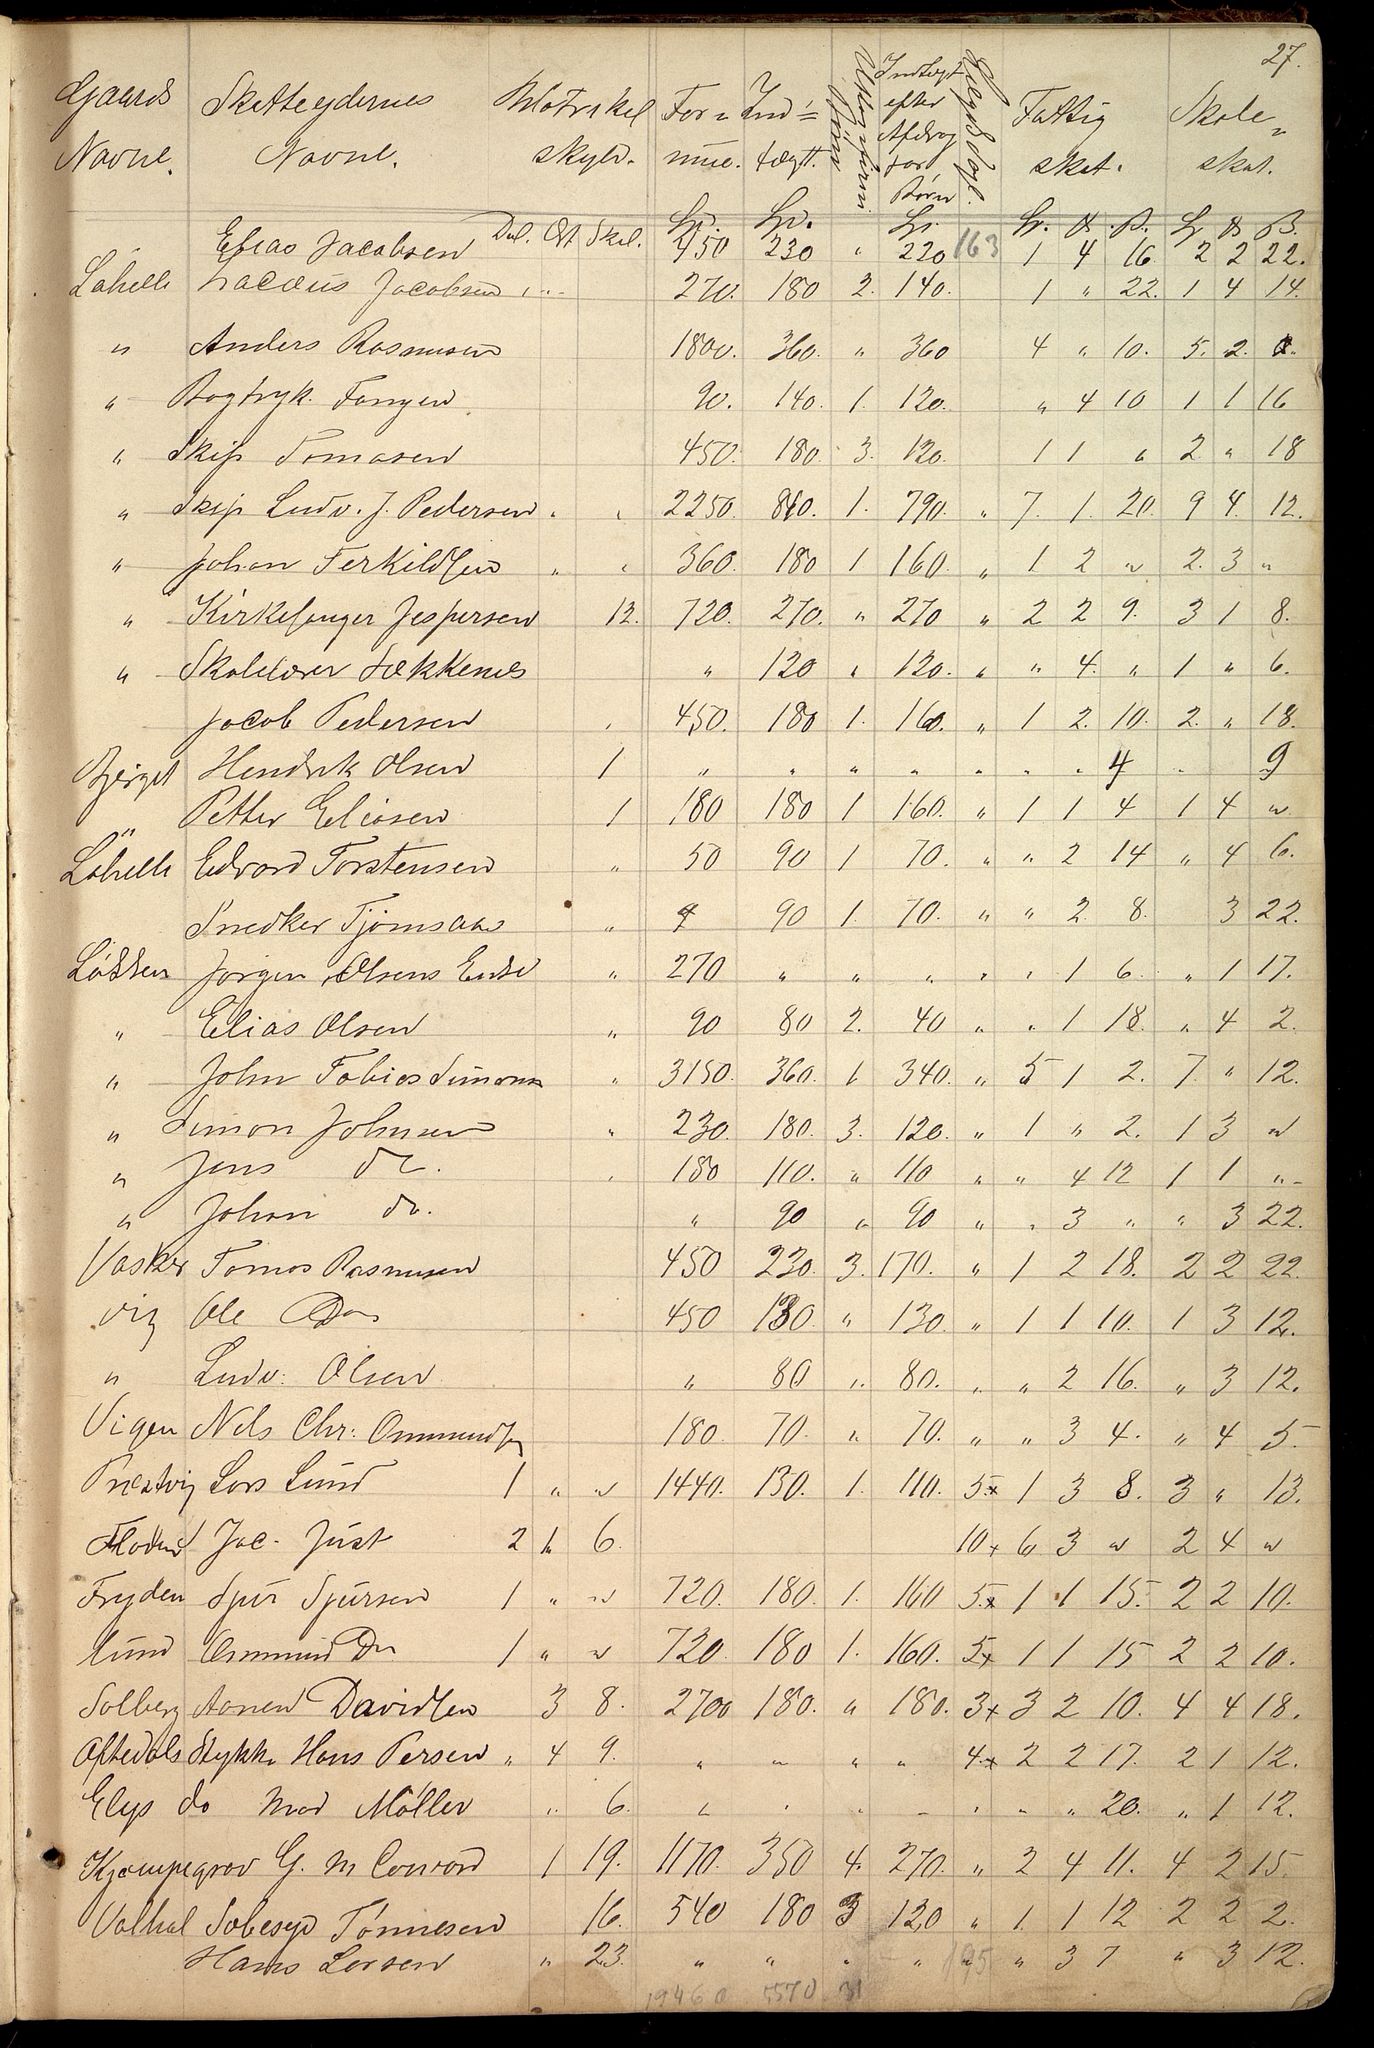 27.
Gaards Navne. Skatteydernes Navne. Matrikel skyld. For= mue. Ind= tægt. Børn Indtægt efter Afdrag for Børn Fattig skat. Skole= skat.
Dal. Ort Skil. Sp. Sp. Sp. Sp. ℔ β. Sp ℔ β.
Elias Jacobsen 450 230 " 230 163 1 4 16 2 2 22.
Lahelle Jacobsen 270. 180 2. 140. 1 " 22. 1 4 14.
" Anders Rasmusen 1800. 360. " 360 4 " 10. 5. 2.
" Bogtryk. Fangen 90. 140. 1. 120. " 4 10 1 1 16
" Skip Tomasen 450. 180. 3. 120. 1 1 " 2. " 18
" Skip Ludv. J. Pedersen " " 2250. 810. 1. 790. " 7. 1. 20. 9 4. 12.
" Johan Terkildsen " " 360. 180 1 160. " 1 2 " 2. 3 "
" Kirkesanger Jespersen 12. 720. 270. " 270 " 2 2 9. 3 1 8.
" Skolelærer " 120 " 120. " " 4. " 1 " 6.
Jacob Pedersen " 450. 180 1. 160. " 1 2. 10. 2. " 18.
Bjerget Hendrik Olsen 1 " " " " " " " 4 " 9
" Petter Eliasen 1 180 180 1 160. " 1 1 4 1 4 "
Lahelle Edvard Torstensen " 50 90 1 70. " " 2 14 " 4 6.
Snedker Tjømsaas " 90 1. 70. " " 2. 8. 3 22.
Løkken Jørgen Olsens Enke " 270 " " " " " 1 6. " 1 17.
" Elias Olsen " 90 80 2. 40 " " 1 18. " 4 2.
" John Tobias Simonsen " 3150. 360. 1 340. " 5 1 2. 7. " 12.
" Simon Johnsen " 230. 180. 3. 120. " 1 " 2. 1 3 "
" Jens do. " 180 110. " 110 " " 4 12 1 1 "
" Johan do. " 90 " 90 " " 3 " " 3 22.
Vasker Tomas Rasmusen 450 230. 3. 170. " 1 2 18. 2 2 22.
vig Ole Do 450 130. " 130. " 1 1 10. 1 3 12.
" Ludv: Olsen " 80 " 80. " " 2 16. " 3 12.
Vigen Nels Chr: Ommundsen 180. 70. " 70. " " 3 4. " 4 5.
Prestvig Lars Lund 1 " " 1440. 130. 1. 110. 5 x 1 3 8. 3 " 13.
Jac. Just 2 1 6. 10 x 6 3 " 2 4 "
Fryden Sjur Sjursen 1 " " 720. 180. 1. 160 5 x 1 1 15. 2 2 10.
lund Ommund Do 1 " " 720. 180 1. 160. 5 x 1 1 15 2 2 10.
Solberg Aanen Davidsen 3 8. 2700 180. " 180. 3 x 3 2 10. 4 4 18.
Aftedals Stykke Hans Persen " 4 9. " " " " 4 x 2 2 17. 2 1 12.
Elys do Mad Møller " 6. " " " " " " " 20. " 1 12.
Kjæmpegrav G. M Conrad 1 19. 1170. 350 4. 270. " 2 4 11. 4 2 15.
Valhal Tønnesen 16. 540 180 3 120 " 1. 1 12 2 2 2.
Hans Larsen " 23. " " " " 195 " 3 7 " 3 12.
19460 5570 31